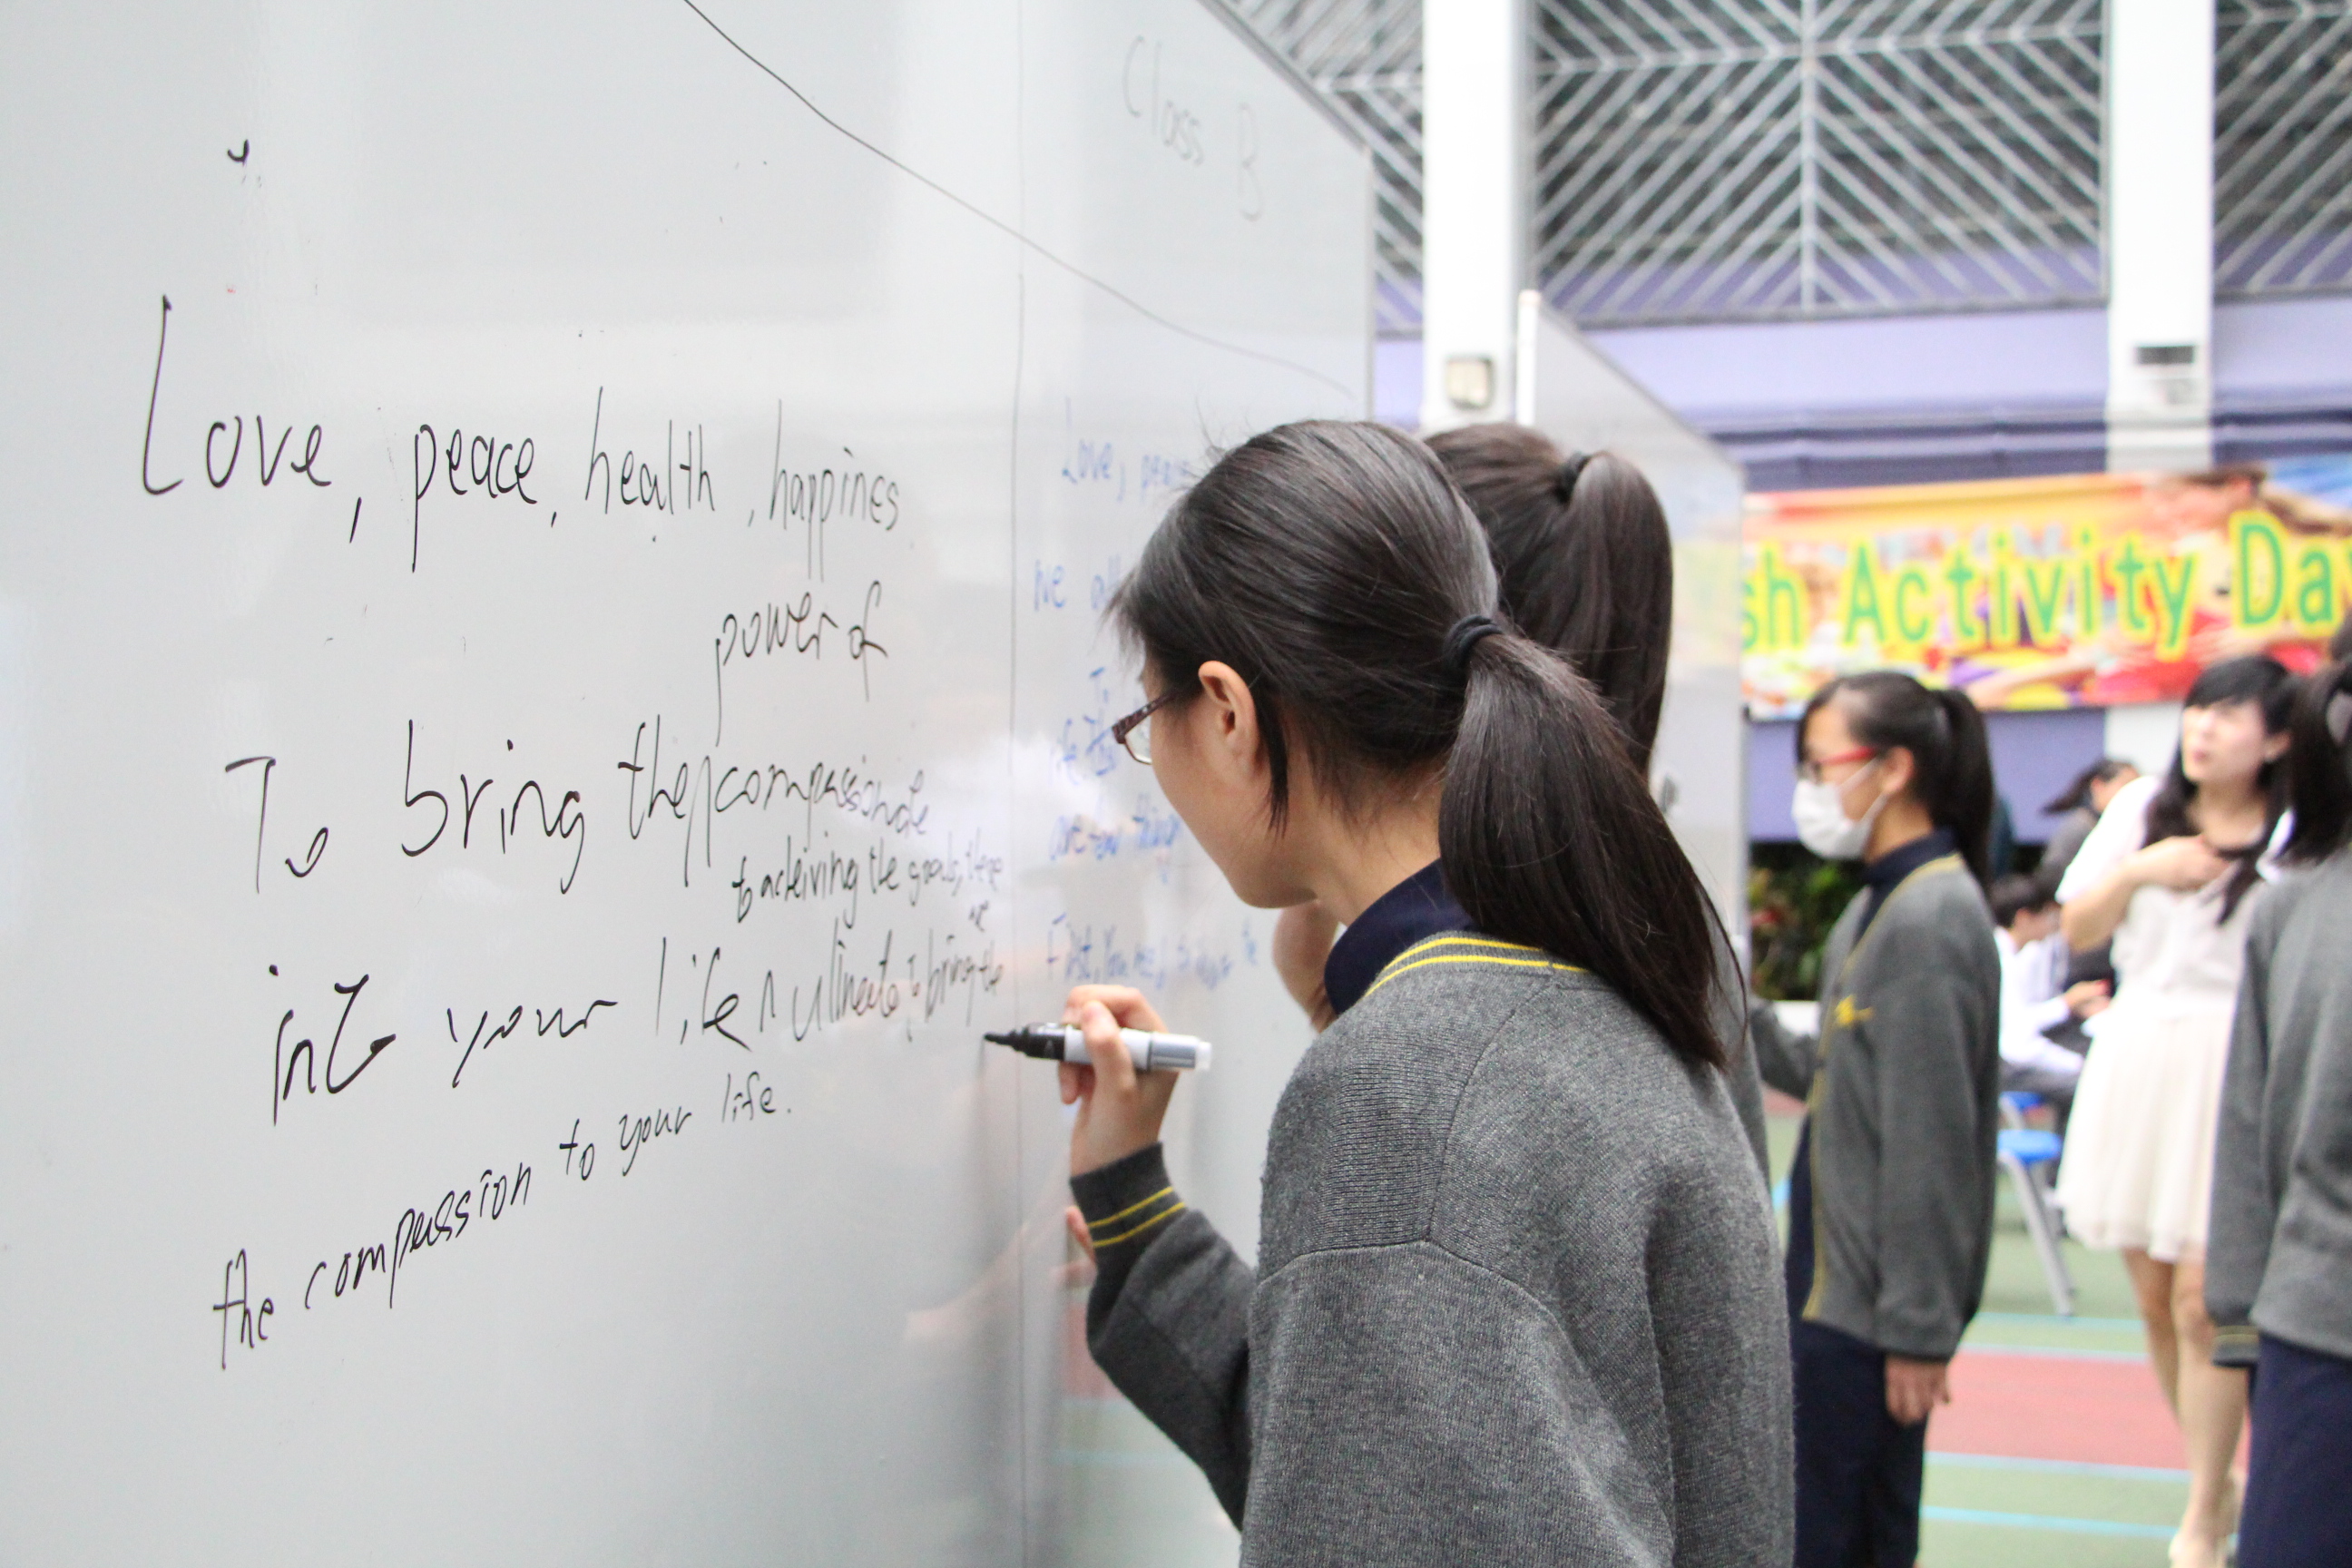 Class B
Love, peace, health, happines
power of
To bring the compassionate
to acheiving the goals, these
we
into your life n ulineate to bring the
the compassion to your life.
Love, peac
we all
To
life. This
are ten things
First, you need to the
sh Activity Day